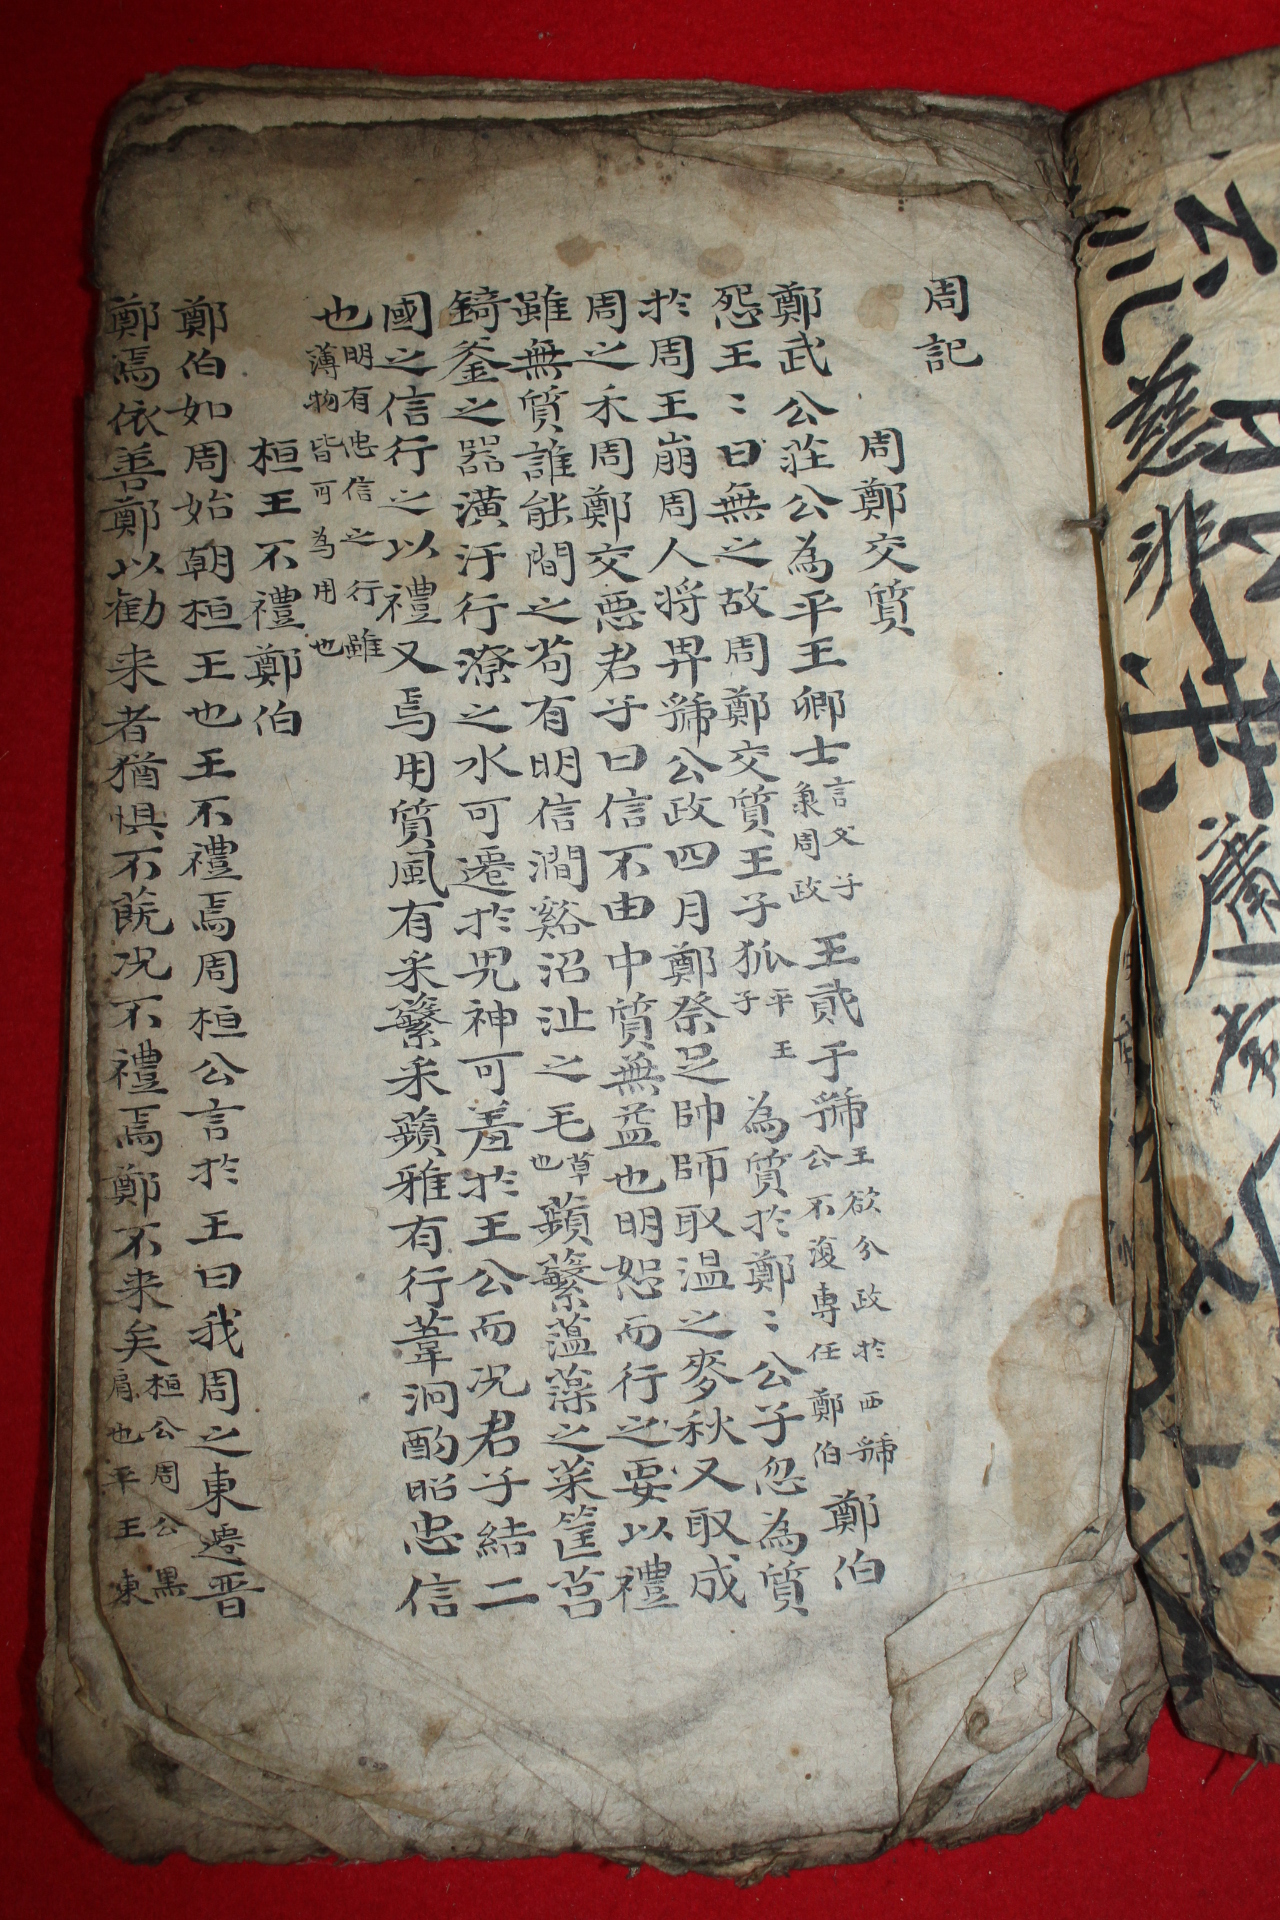 周記
周鄭交質
鄭武公莊公為平王卿士言父子秉周政王貳于虢王欲分政於西虢公不復專任鄭伯鄭伯
怨王〻曰無之故周鄭交質王子狐平王子為質於鄭〻公子忽為質
於周王崩周人將畀虢公政四月鄭祭足帥師取温之麥秋又取成
周之禾周鄭交惡君子曰信不由中質無益也明恕而行之要以禮
雖無質誰能間之苟有明信澗谿沼沚之毛草也蘋蘩薀藻之菜筐筥
錡釜之器潢汙行潦之水可遷於鬼神可羞於王公而况君子結二
國之信行之以禮又焉用質風有采蘩采蘋雅有行葦泂酌昭忠信
也明有忠信之行雖薄物皆可為用也
桓王不禮鄭伯
鄭伯如周始朝桓王也王不禮焉周桓公言於王曰我周之東遷晋
鄭焉依善鄭以勸来者猶惧不蔇况不禮焉鄭不来矣桓公周公黑肩也平王東